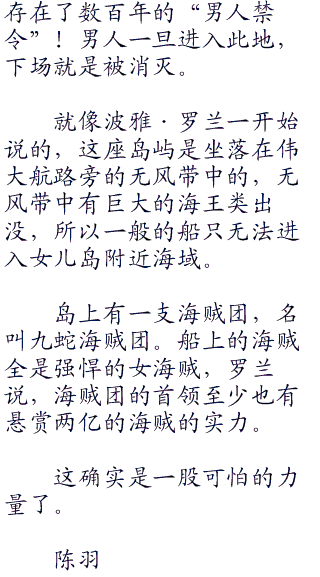 存在了数百年的“男人禁
令”！男人一旦进入此地，
下场就是被消灭。
就像波雅·罗兰一开始
说的，这座岛屿是坐落在伟
大航路旁的无风带中的，无
风带中有巨大的海王类出
没，所以一般的船只无法进
入女儿岛附近海域。
岛上有一支海贼团，名
叫九蛇海贼团。船上的海贼
全是强悍的女海贼，罗兰
说，海贼团的首领至少也有
悬赏两亿的海贼的实力。
这确实是一股可怕的力
量了。
陈羽